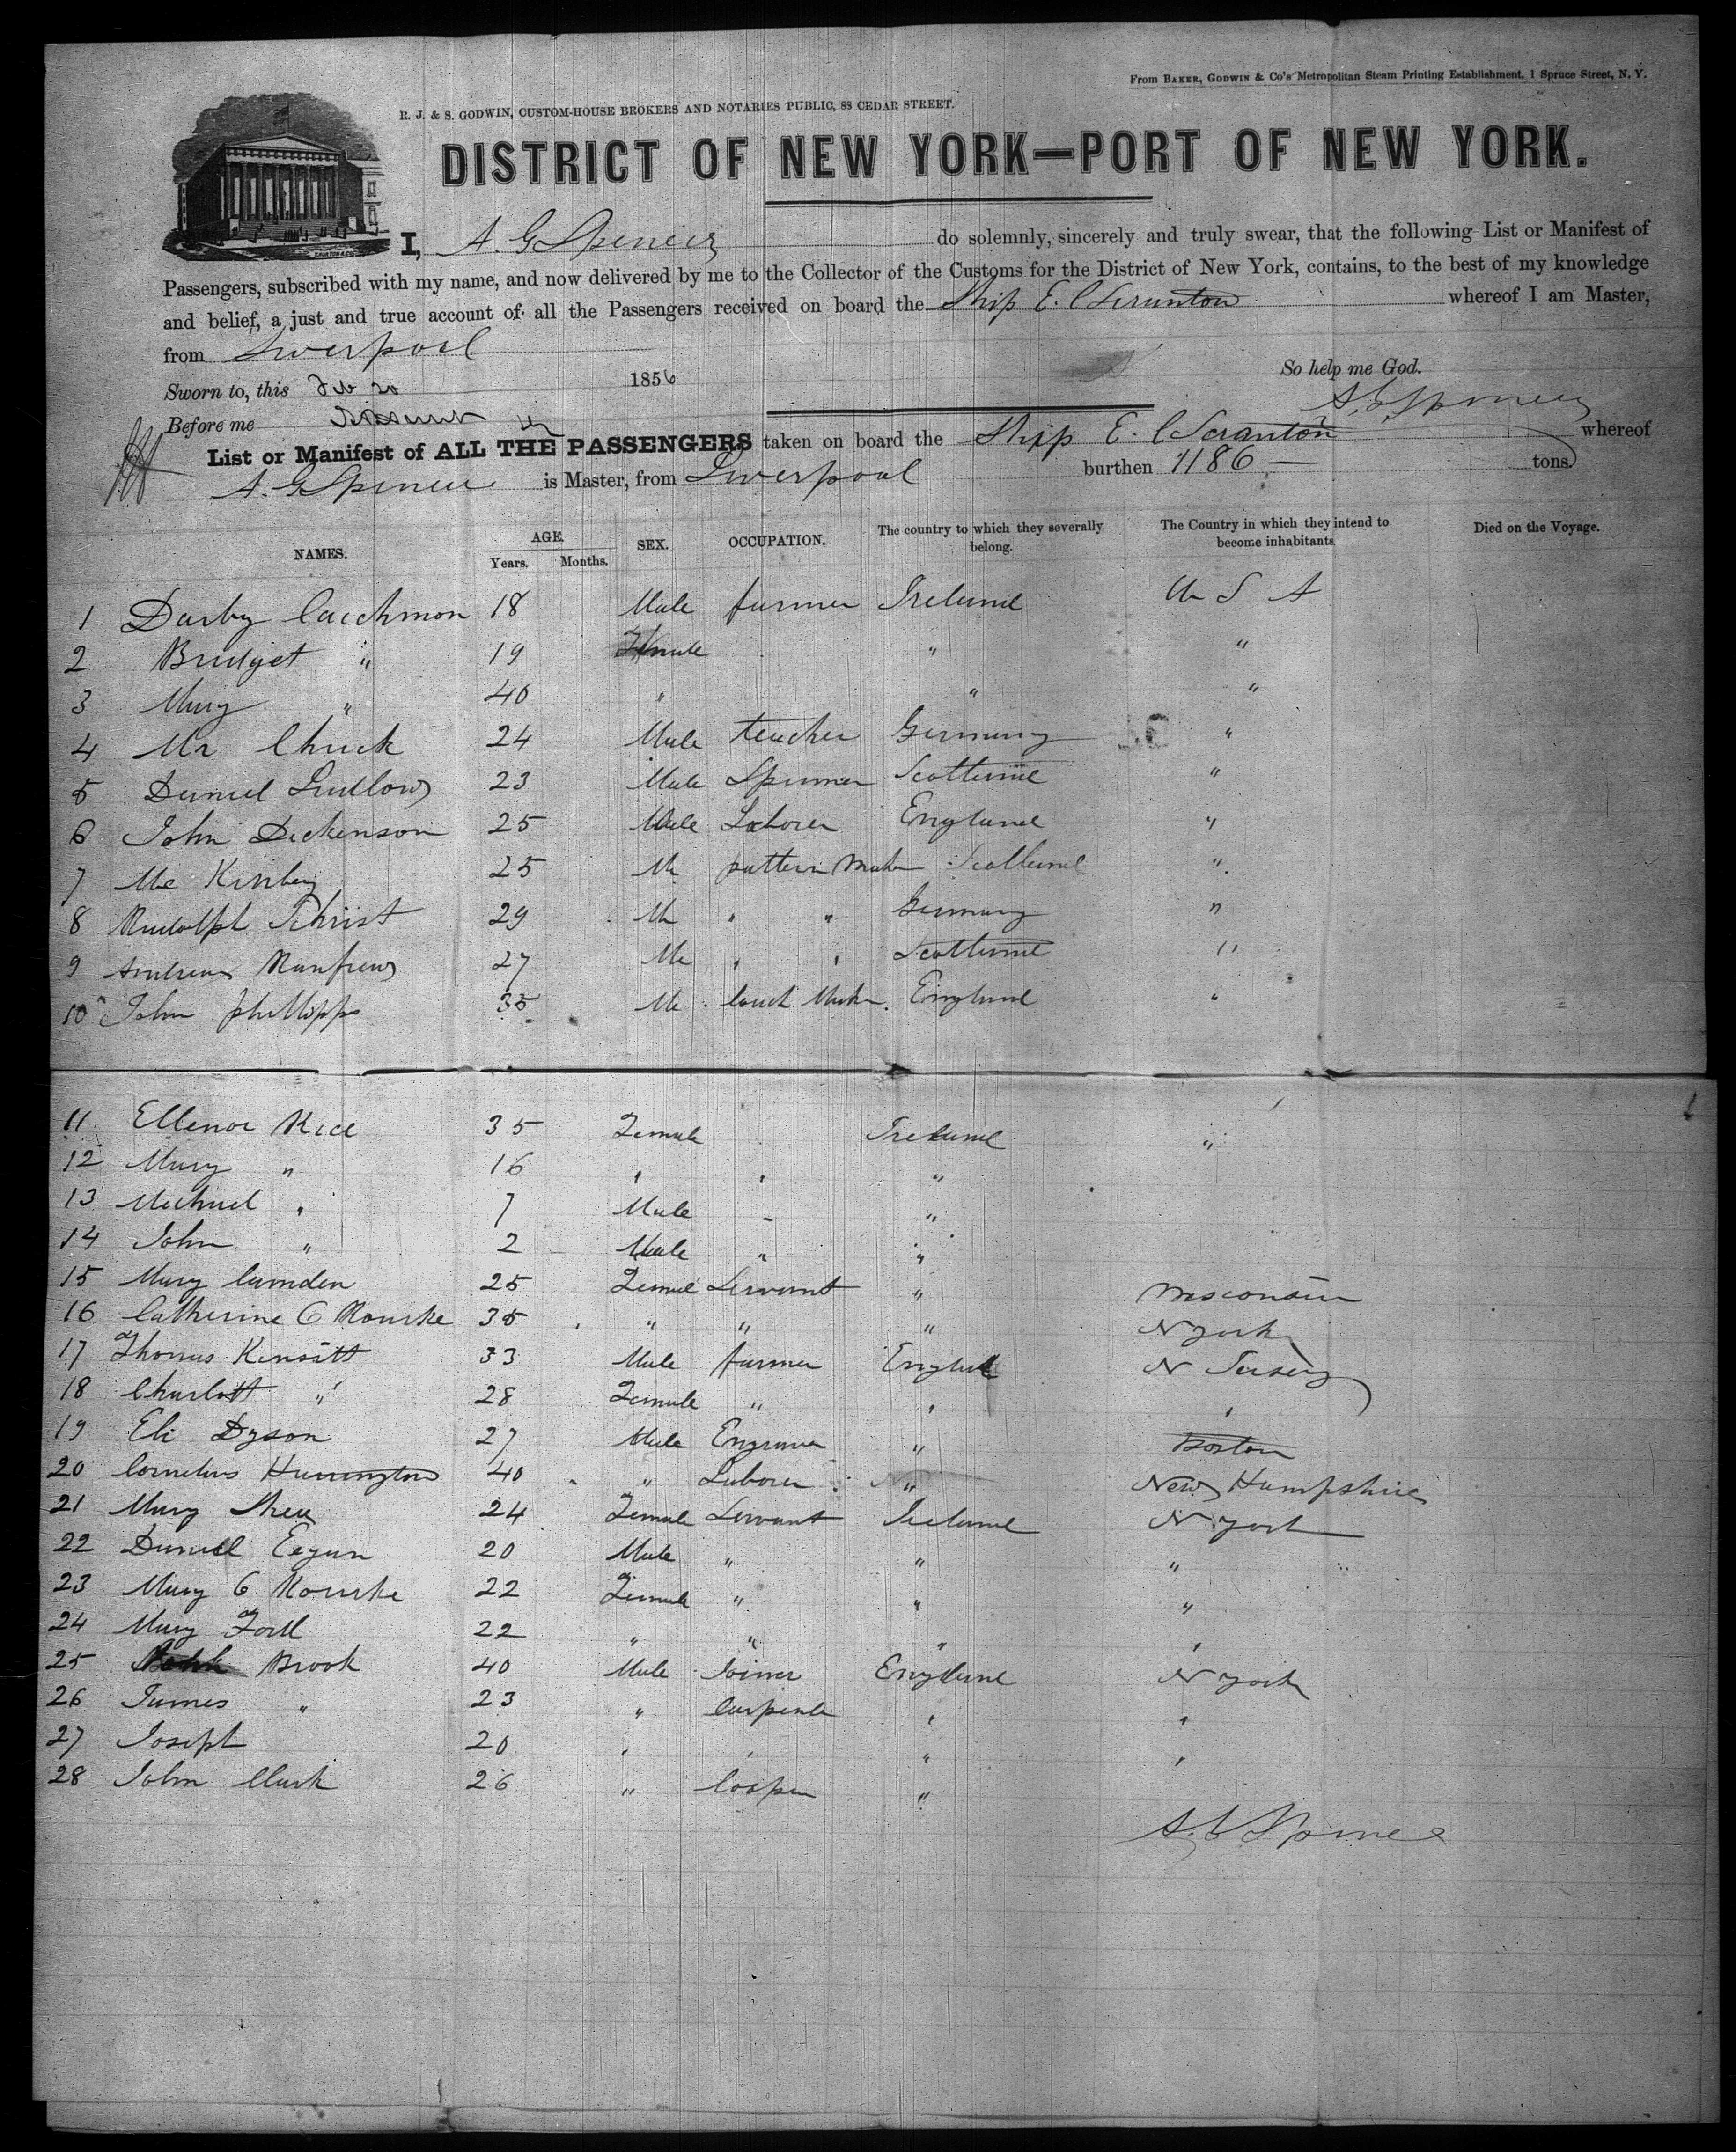 From BAKER, GODWIN & Co's Metropolitan Steam Printing Establishment, 1 Spruce Street, N. Y.
R. J. & S. GODWIN, CUSTOM-HOUSE BROKERS AND NOTARIES PUBLIC, 88 CEDAR STREET.
DISTRICT OF NEW YORK—PORT OF NEW YORK.
I, A. G Spencer do solemnly, sincerely and truly swear, that the following List or Manifest of
Passengers, subscribed with my name, and now delivered by me to the Collector of the Customs for the District of New York, contains, to the best of my knowledge
and belief, a just and true account of all the Passengers received on board the Ship E. C Scranton whereof I am Master,
from Liverpool
So help me God.
Sworn to, this Feb 20 1856
A. G Spencer
Before me
List or Manifest of ALL THE PASSENGERS taken on board the Ship E. C Scranton whereof
A. G Spencer is Master, from Liverpool burthen 1186 tons.
NAMES. AGE. Years. Months. SEX. OCCUPATION. The country to which they severally belong. The Country in which they intend to become inhabitants. Died on the Voyage.
1 Darby 18 Male farmer Ireland U S A
2 Bridget " 19 Female " "
3 Mary " 40 " " "
4 Mr Chuck 24 Male teacher Germany "
5 Daniel Ludlow 23 Male Spinner Scotland "
6 John Dickenson 25 Male Laborer England "
7 25 M pattern Maker Scotland "
8 Rudolph 29 M " " Germany "
9 Andrew Ranfrew 27 M " " Scotland "
10 John Phillipps 35 M Coach Maker England "
11 Ellenor Rice 35 Female Ireland "
12 Mary " 16 " " "
13 Michael " 7 Male - "
14 John " 2 Male " "
15 Mary Camden 25 Femal Servant " Wisconsin
16 Catherine O Rourke 35 " " " N York
17 Thomas Kinsitt 33 Male farmer England N Jersey
18 Charlott " 28 Female " " "
19 Eli Dyson 27 Male Engraver " Boston
20 Cornelius Harrington 40 " Laborer " New Hampshire
21 Mary Shea 24 Female Servant Ireland N York
22 Daniel Eegan 20 Male " " "
23 Mary O Rourke 22 Female " " "
24 Mary 22 " " " "
25 Brook 40 Male Joiner England N York
26 James " 23 " Carpente " "
27 Joseph 20 " " " "
28 John Clark 26 " Cooper "
A. G Spencer